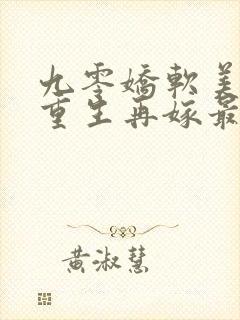 九零嬌軟美
重生再嫁最
黃淑慧